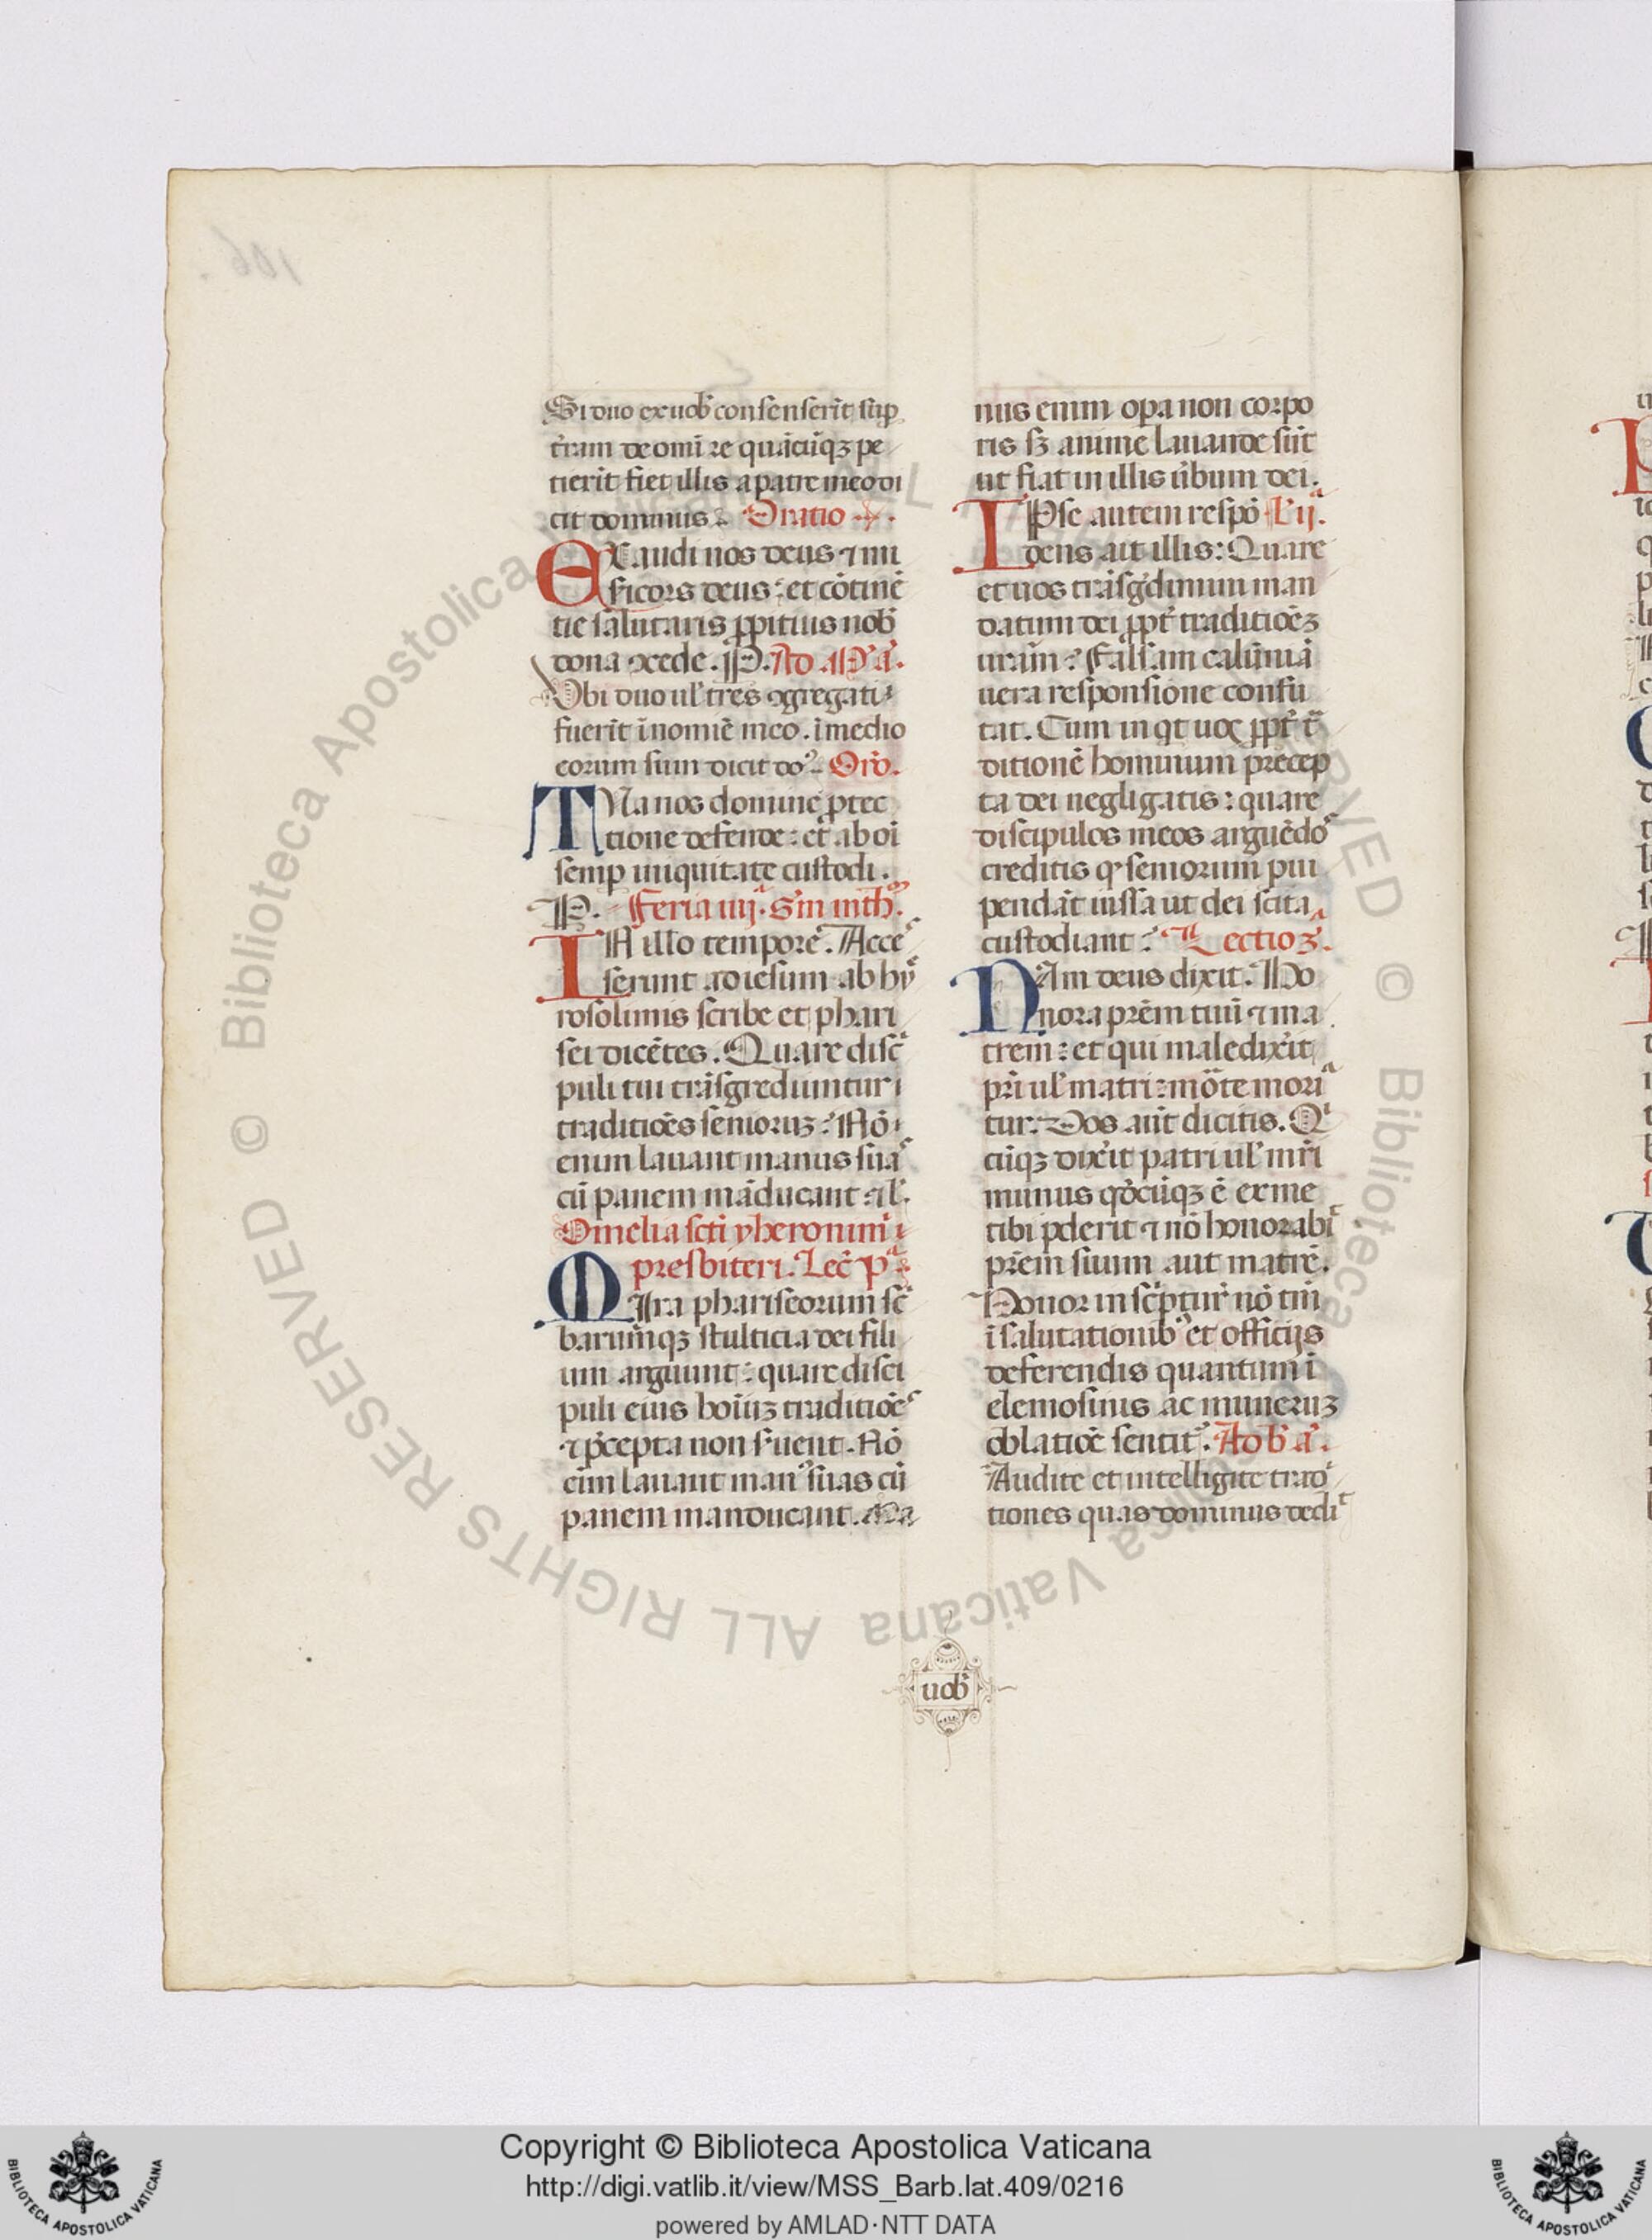 Si duo ex uob̄ consenserīt sup̲
t̄ram de om̄i re quācūqꝫ pe
tierīt fiet illis a patre meo di
cit dominus. Oratio.
EXaudi nos deus ⁊ mi
sicors deus: et cōtinē
tie salutaris ꝓpitius nob̄
dona ꝯcede. P. Ad .M̄. a᷒.
Ubi duo ul̄ tres ꝯgregati
fuerīt ī nomīe meo. ī medio
eorum sum dicit do᷒. Orō.
TUa nos domine ꝓtec
tione defende: et ab oī
semp̲ iniquitate custodi.
P. Feria iiij. S̄m mth̄.
IN illo tempore. Acce
serunt ad iesum ab hy
rosolimis scribe et phari
sei dicētes. Quare disc̄
puli tui trāsgrediuntur
traditiōes seniorūꝫ: Nō
enim lauant manus sua᷒
cū panem māducant. ⁊ l̄.
Omelia sc̄ti yheronimi
presbiteri. Lec̄ p̄ᵃ.
MIra phariseorum sc̄
barumqꝫ stulticia dei fili
um arguunt: quare disci
puli eius hoīuꝫ traditiōe᷒
⁊ p̄cepta non s̄uent. Nō
eīm lauant man᷒ suas cū
panem manducant. Ma
nus enim op̲a non corpo
ris sꝫ anime lauande sūt
ut fiat in illis ūbum dei.
IPse autem respō L̄ ij.
dens ait illis: Quare
et uos trāsgdimini man
datum dei ꝓpt̄ traditiōeꝫ
uram: Falsam calūniā
uera responsione confu
tat. Cum inqt uos ꝓpt̄ t̄ᵃ
ditionē hominum precep
ta dei negligatis: quare
discipulos meos arguēdo᷒
creditis ꝙ seniorum piui
pendāt iussa ut dei scita
custodiant: Lectio 3ᵃ.
NAm deus dixit. Ho
nora prēm tuū ⁊ ma
trem: et qui maledix̄it
pr̄i ul̄ matri: morte mori
tur. Uos aūt dicitis. Qⁱ
cūqꝫ dix̄it patri ul̄ mr̄i
munus qd̄cūqꝫ ē ex me
tibi p̲derit ⁊ nō honorabit
prēm suum aut matrē.
Honor in sc̄ptur̄ nō tm̄
ī salutationib᷒ et officijs
deferendis quantum ī
elemosinis ac muneruꝫ
oblatiōe sentit᷒. Ad b̄. a᷒.
Audite et intelligite trad
tiones quas dominus dedit
uob̄
© Biblioteca Apostolica Vaticana ALL RIGHTS RESERVED
Copyright © Biblioteca Apostolica Vaticana
http://digi.vatlib.it/view/MSS_Barb.lat.409/0216
powered by AMLAD·NTT DATA
BIBLIOTECA APOSTOLICA VATICANA
BIBLIOTECA APOSTOLICA VATICANA